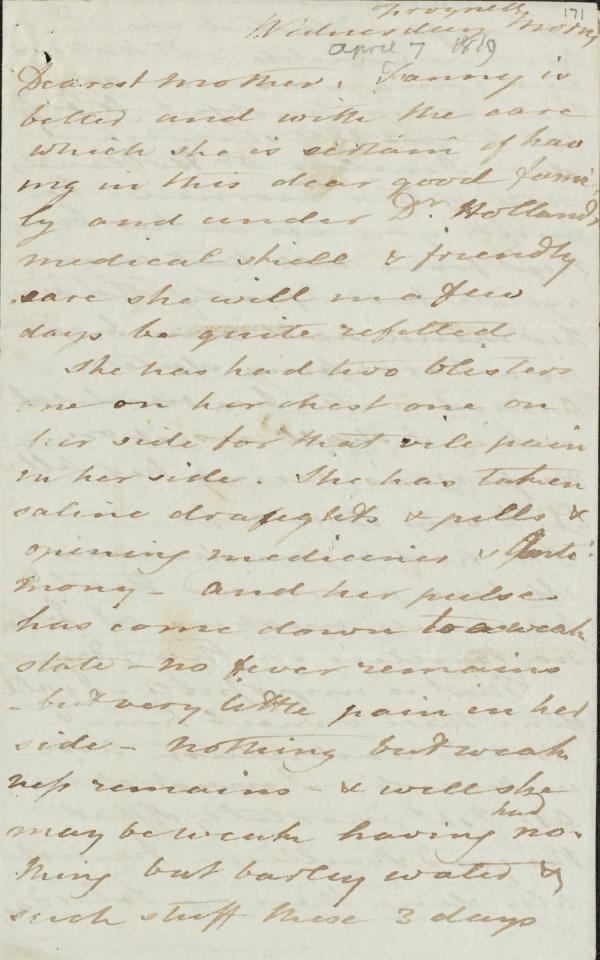 171
Frognell
Wednesday Morng
April 7 1819
Dearest Mother. Fanny is
better and with the care
which she is certain of hav
ing in this dear good fami
ly and under Dr. Holland's
medical skill & friendly
care she will in a few
days be quite refitted
She has had two blisters
one on her chest one on
her side for that vile pain
in her side. She has taken
saline draughts & pills &
opening medicines & Anti
mony - and her pulse
has come down to a weak
state - no fever remains
- but very little pain in her
side - nothing but weak
ness remains - & well she
may be weak having had no
thing but barley water &
such stuff these 3 days